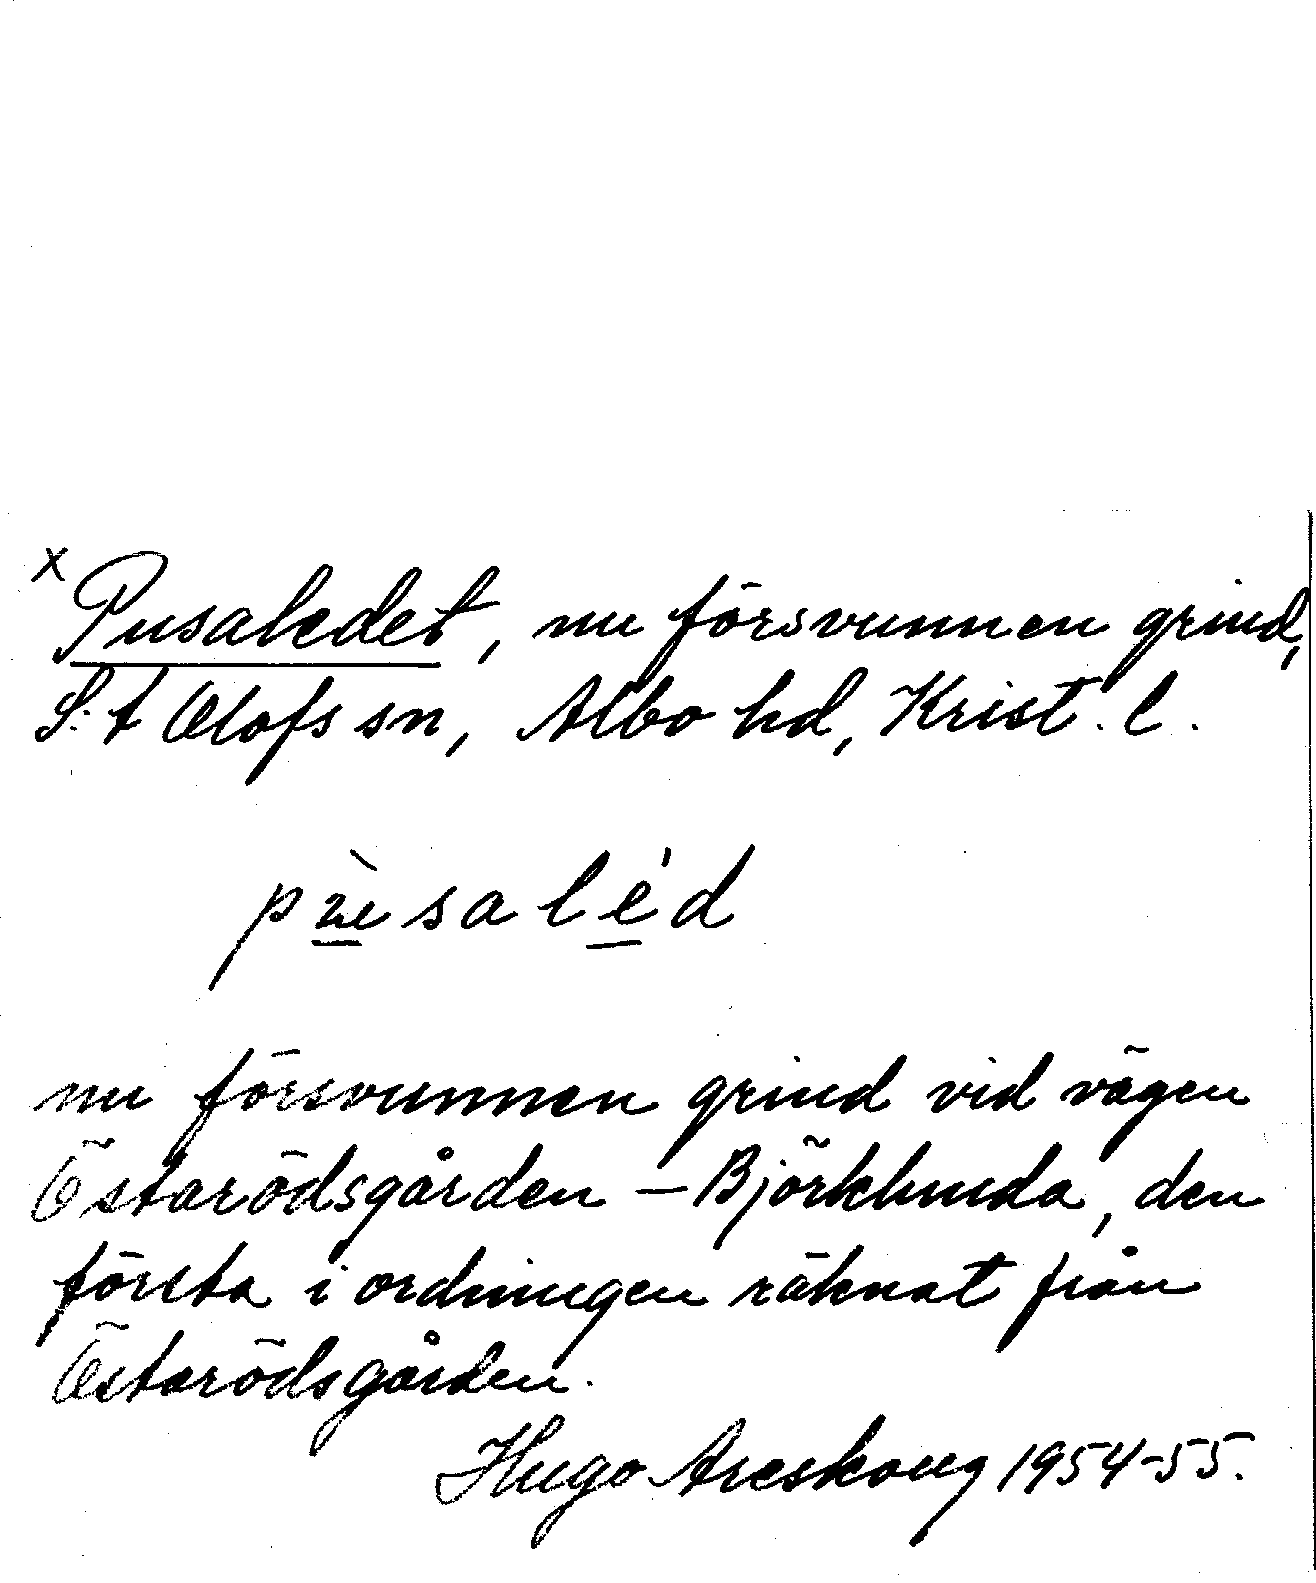 x Pusaledet, nu försvunnen grind,
S:t Olofs sn, Albo hd, Krist. l.
pùsaléd
nu försvunnen grind vid vägen
Östarödsgården – Björklunda, den
första i ordningen räknat från
Östarödsgården.
Hugo Areskoug 1954-55.